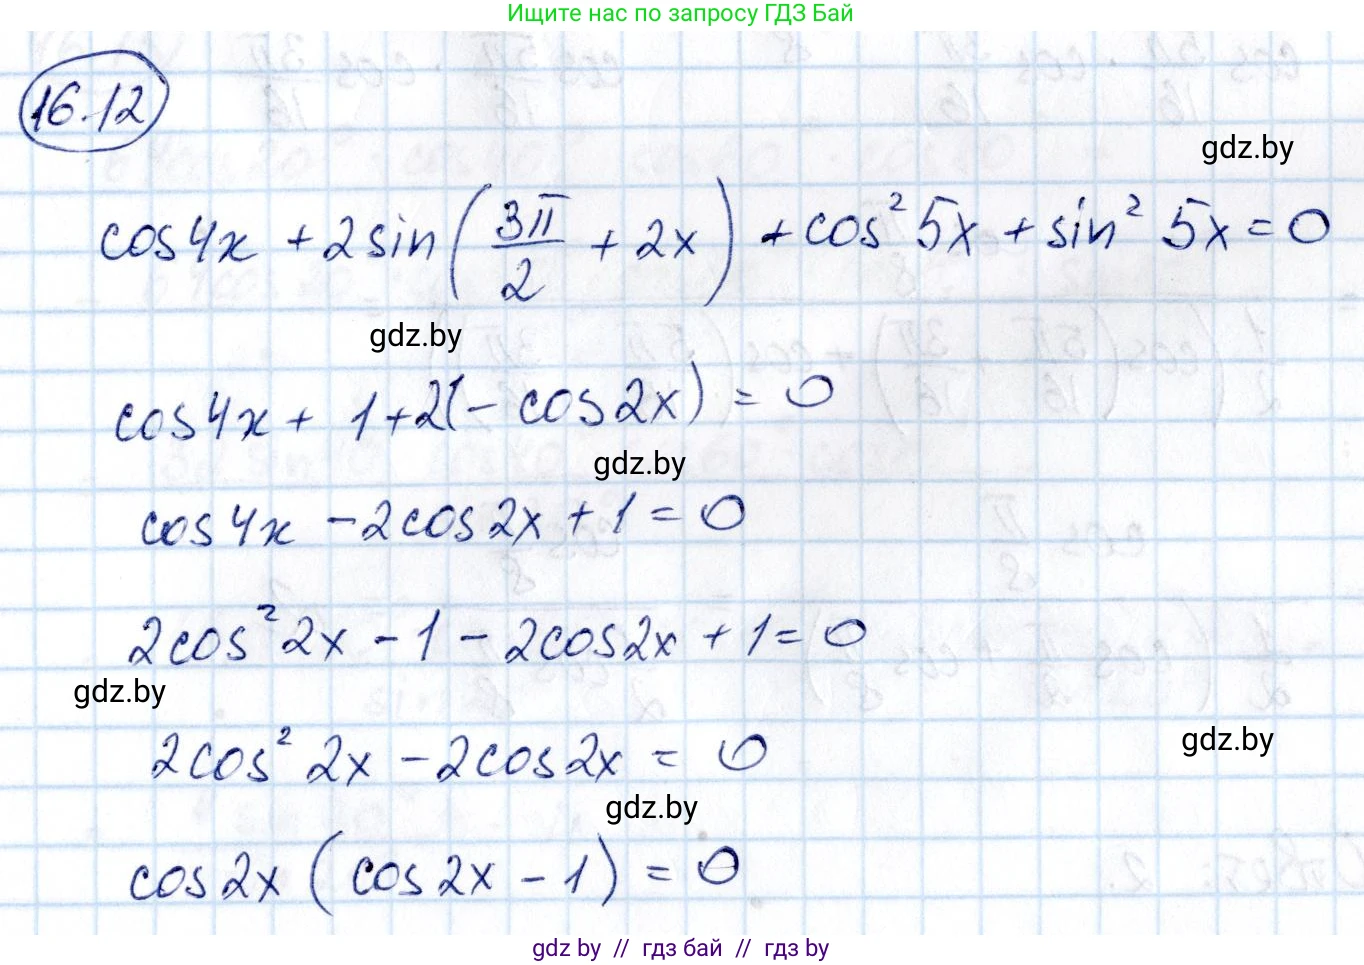 Ищите нас по запросу ГДЗ Бай
16.12
gdz.by
cos4x + 2sin(3π/2 + 2x) + cos² 5x + sin² 5x = 0
gdz.by
cos4x + 1 + 2(- cos2x) = 0
gdz.by
cos4x - 2cos2x + 1 = 0
2cos² 2x - 1 - 2cos2x + 1 = 0
gdz.by
gdz.by
2cos² 2x - 2cos2x = 0
gdz.by
cos2x (cos2x - 1) = 0
gdz.by // гдз бай // гдз by